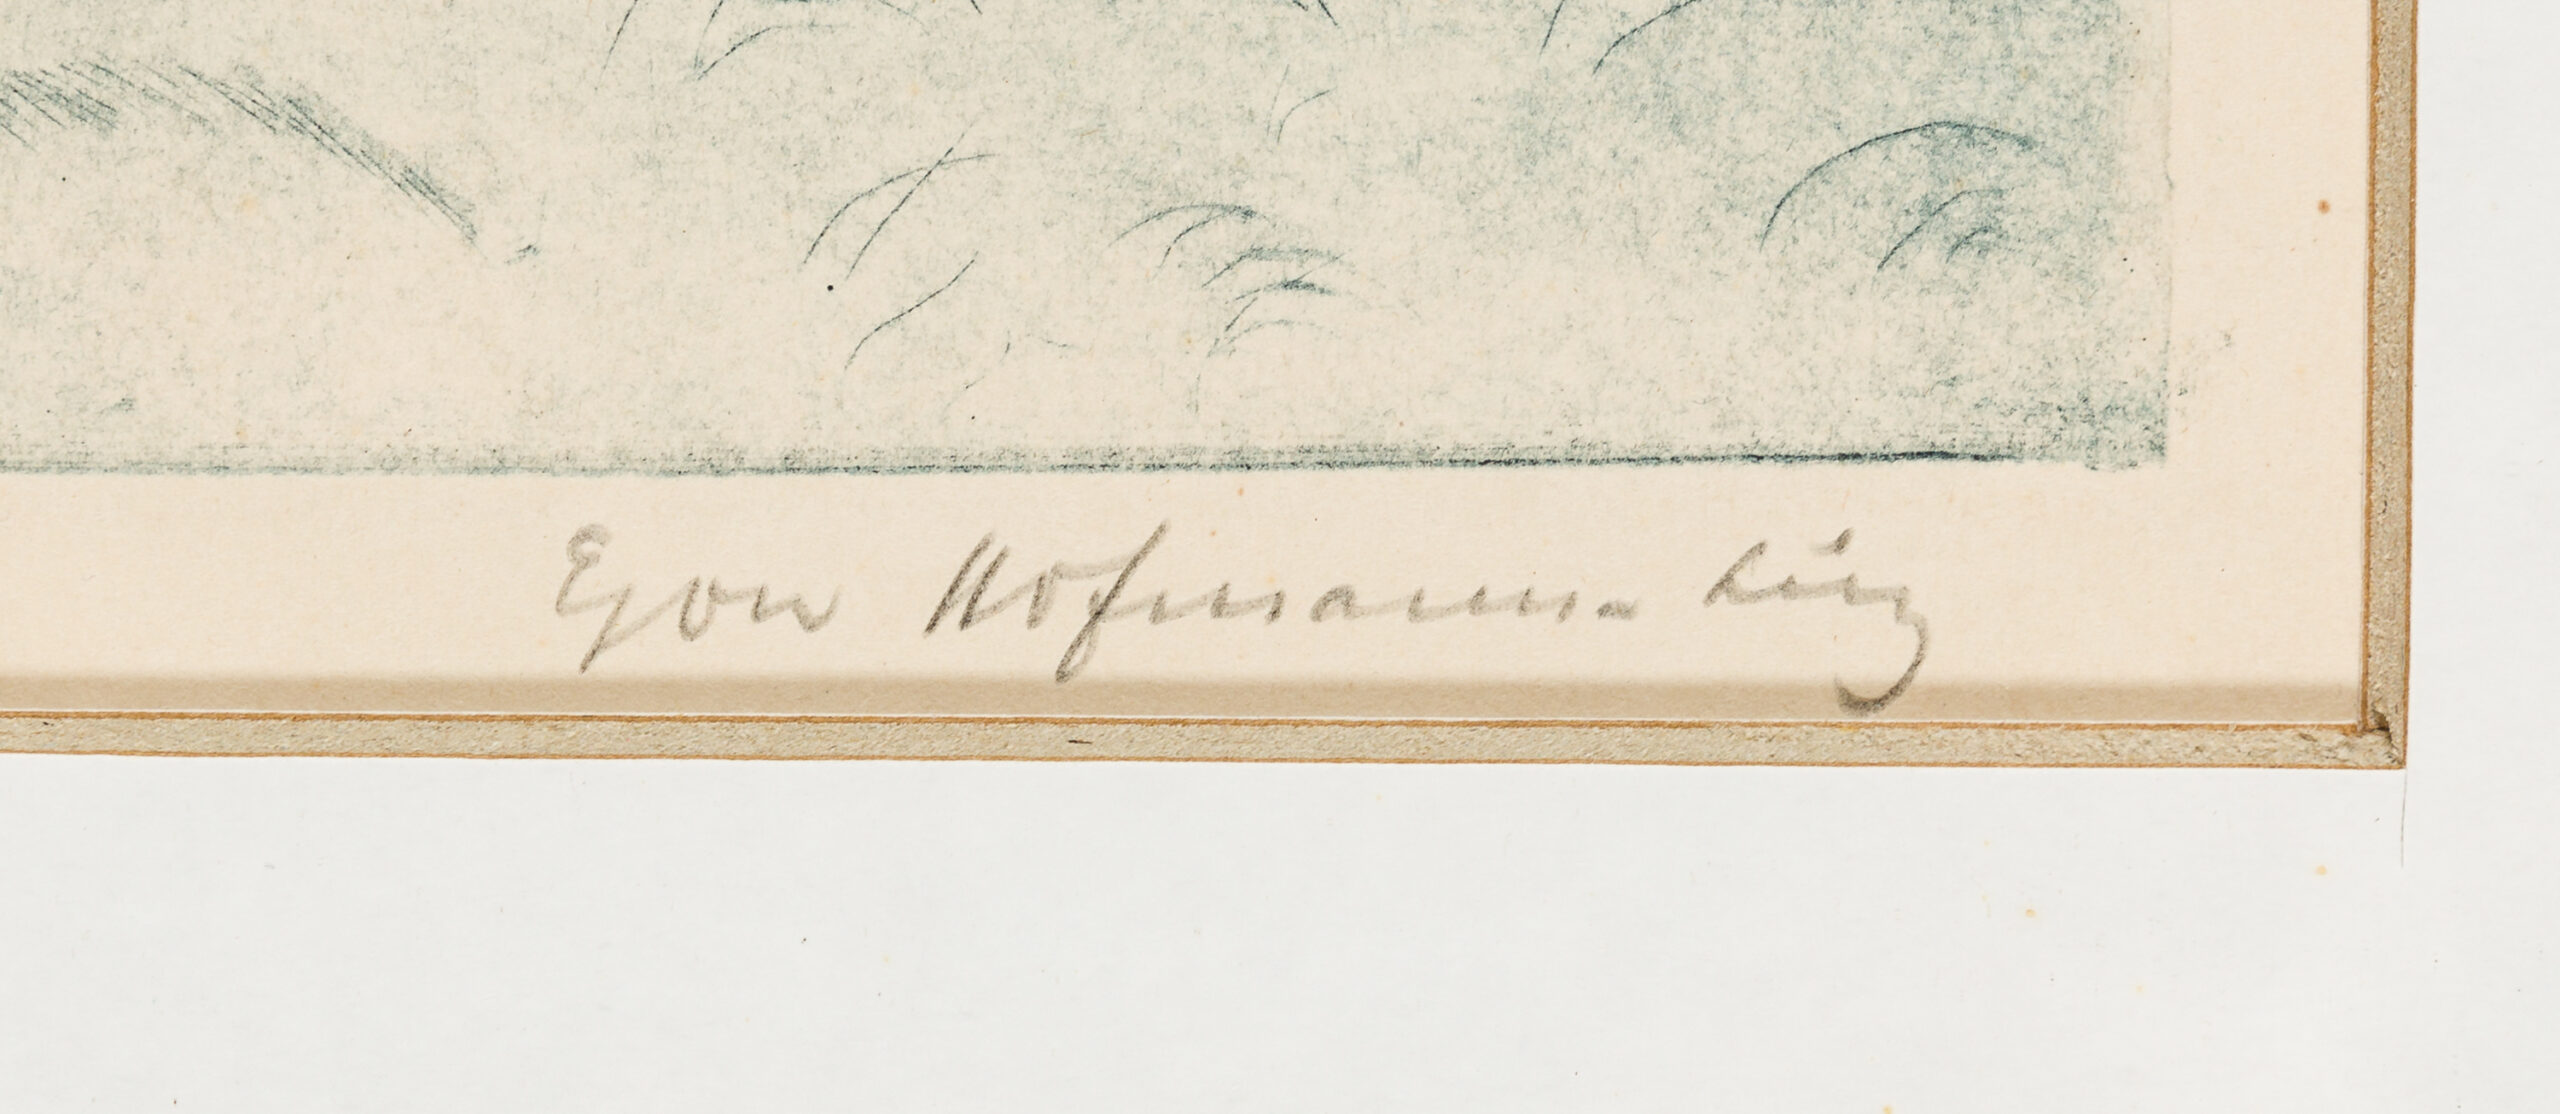 Egon Hofmann-Linz